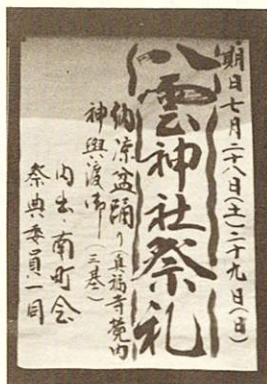 期日七月二十八日(土)二十九日(日)
八雲神社祭礼
納涼盆踊り真福寺境内
神輿渡御(三基)
内出南町会
祭典委員一同